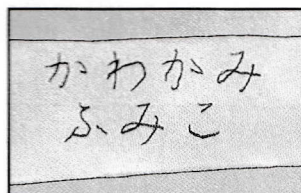 かわかみ
ふみこ